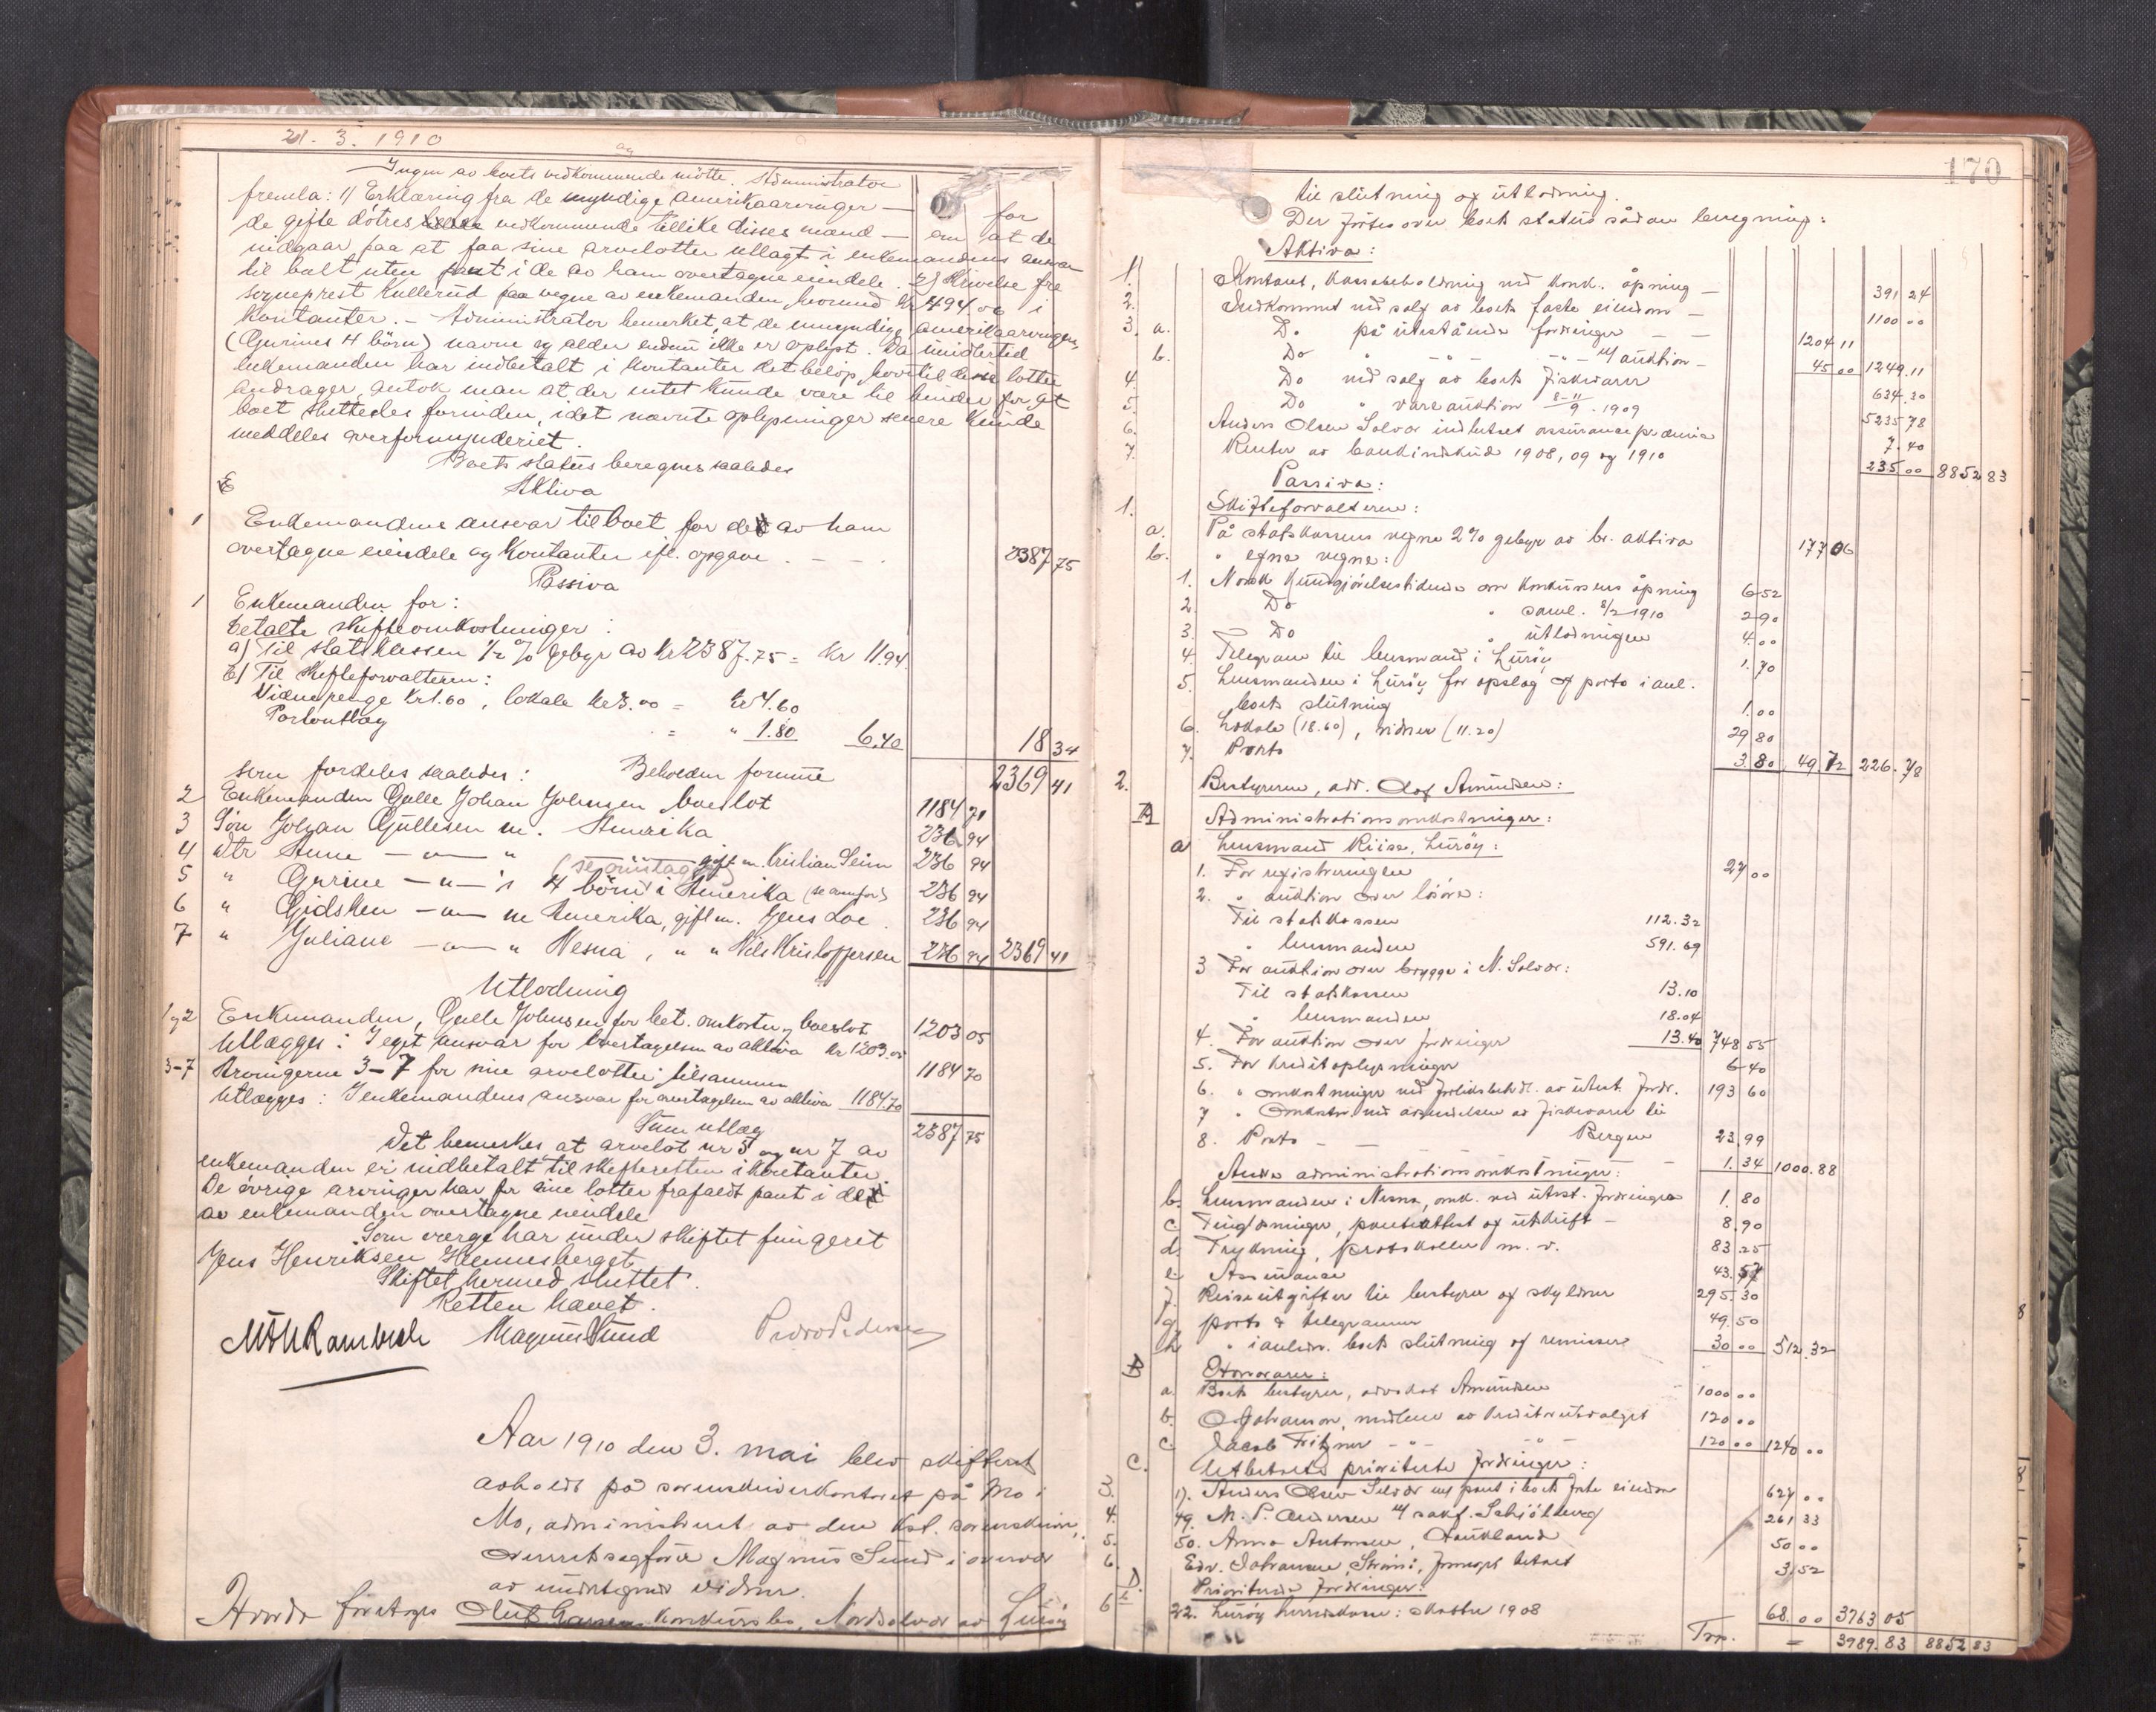 21. 3. 1910
Ingen av boets vedkommende mötte. Administrator
fremla: 1) Erklæring fra de myndige amerikaarvinger — for
de gifte dötres vedkommende tillike disses mænd — om at de
indgaar paa at faa sine arvelotter utlagt i enkemandens ansvar
til boet uten pant i de av ham overtagne eiendele. 2) Skrivelse fra
sogneprest Kullerud paa vegne av enkemanden, hvorved kr 494.00 i
kontanter. — Administrator bemerket, at de umyndige amerikaarvinger,
(Gurines 4 börn) navne og alder endnu ikke er oplyst. Da imidlertid
enkemanden har indbetalt i kontanter det belöp, hvortil denne lotter
andrager, antok man at der intet kunde være til hinder for at
boet sluttedes forinden, idet nævnte oplysninger senere kunde
meddeles overformynderiet.
Boets status beregnes saaledes
Aktiva
1 Enkemandens ansvar til boet for det av ham
overtagne eiendele og kontanter ifl. opgave . — — . 2387 75
Passiva
1 Enkemanden for:
betalte skifteomkostninger:
a) Til statskassen 1/2 % gebyr av kr 2387.75 = kr 11.94
b) Til skifteforvalteren:
Vidnepenge kr 1.60, lokale kr 3.00 = kr 4.60
Portoutlæg = " 1.80 6.40 18 34
som fordeles saaledes: Beholden formue 2369 41
2 Enkemanden Gulle Johan Johnsen boeslot 1184 71
3 Sön Johan Gullesen m. Amerika 236 94
4 dtr Anne — " — " (se omstaa) gift m. Kristian Seim 236 94
5 " Gurine — " — 's 4 börn i Amerika (se ovenfor) 236 94
6 " Gidsken — " — m Amerika, gift m. Jens Loe 236 94
7 " Juliane — " — " Nesna, " " Nils Kristoffersen 236 94 2369 41
Utlodning
1 og 2 Enkemanden, Gulle Johnsen for bet. omkostn. og boeslot 1203 05
Utlægges: I eget ansvar for overtagelsen av aktiva kr 1203.05
3-7 Arvingerne 3-7 for sine arvelotter tilsammen 1184 70
Utlægges: I enkemandens ansvar for overtagelsen av aktiva 1184.70
Sum utlæg 2387 75
Det bemerkes, at arvelot nr 5 og nr 7 av
enkemanden er indbetalt til skifteretten i kontanter.
De övrige arvinger har for sine lotter frafaldt pant i det
av enkemanden overtagne eiendele
Som verge har under skiftet fungeret
Jens Henriksen Hemnesberget
Skiftet hermed sluttet.
Retten hævet.
Magnus Sund Pedersen
Aar 1910 den 3. mai blev skifteret
avholdt på sorenskriverkontoret på Mo i
Mo, administreret av den kst. sorenskriver,
overretssagförer Magnus Sund i overvær
av undertegnede vidner.
Hvorda foretoges Konkursbo, Nordsolvær av Luröy
170
til slutning og utlodning.
Der förtes over boets status sådan beregning:
Aktiva:
1. Kontant, kassabeholdning ved konk. åpning — 391 24
2. Indkommet ved salg av boets faste eiendom — 1100 00
3. a. Do på utestående fordringer — — 1204 11
b. Do " — " — — " — v/ auktion — 45 00 1249.11
4. Do ved salg av boets fiskevarer 634.30
5. Do " vareauktion 8-11/9 . 1909 5235 78
6. Anders Olsen Solvær indbetalt assurancepræmie 7.40
7. Renter av bankindskud 1908, 09 og 1910 235.00 8852 83
Passiva:
1. Skifteforvalteren:
a. På statskassens vegne 2% gebyr av br. aktiva 177 06
b. " egne vegne:
1. Norsk Kundgjörelsestidende om konkursens åpning 6 52
2. Do " saml. 8/2 1910 2 90
3. Do " utlodningen 4.00
4. Telegram til lensmand i Luröy 1.70
5. Lensmanden i Luröy for opslag og porto i anl.
boets slutning 1.00
6. Lokale (18.60), vidner (11.20) 29 80
7. Porto 3 80 49 72 226.78
2. Bestyreren, adv. Olaf Amundsen:
A Administrationsomkostninger:
a Lensmand Riise, Luröy:
1. For registreringen 27 00
2. " auktion over lösöre:
Til statskassen 112.32
" lensmanden 591.69
3 For auktion over brygge i N. Solvær:
Til statskassen 13.10
" lensmanden 18.04
4. For auktion over fordringer 13.40 748 55
5. For kreditoplysninger 6 40
6. " omkostninger ved forliksbehdl. av utest. fordr. 193 60
7 " Omkostn. ved avsendelsen av fiskevarer til
Bergen 23.99
8. Porto — — 1.34 1000.88
Andre administrationsomkostninger:
b. Lensmanden i Nesna, omk. ved utest. fordringer 1.80
c. Tinglysninger, panteattest og utskrift — 8.90
d. Trykning, protokoller m. v. 83.25
e. Assurance 43.57
f. Reiseutgifter til bestyrer og skyldner 295.30
g. porto & telegrammer 49.50
h " i anledn. boets slutning og remisser 30 00 512.32
B Honorarer:
a. Boets bestyrer, advokat Amundsen 1000 00
b. O. Johansen, medlem av kreditorutvalget 120 00
c. Jacob Fitzner — " — — " — 120 00 1240 00
C. Utbetalte prioriterte fordringer:
3. 17. Anders Olsen Solvær m/ pant i boets faste eiendom 627 00
4. 49. M. P. Andersen v/ sakf. Schjölberg 261 33
5. 50. Anna Antonsen, Haukland 50 00
6. Edv. Johansen, Strömöi, forment betalt 3 52
D. Prioriterte fordringer:
6 22. Luröy herredskasse: skatter 1908 68.00 3763 05
Trp. — 3989.83 8852 83